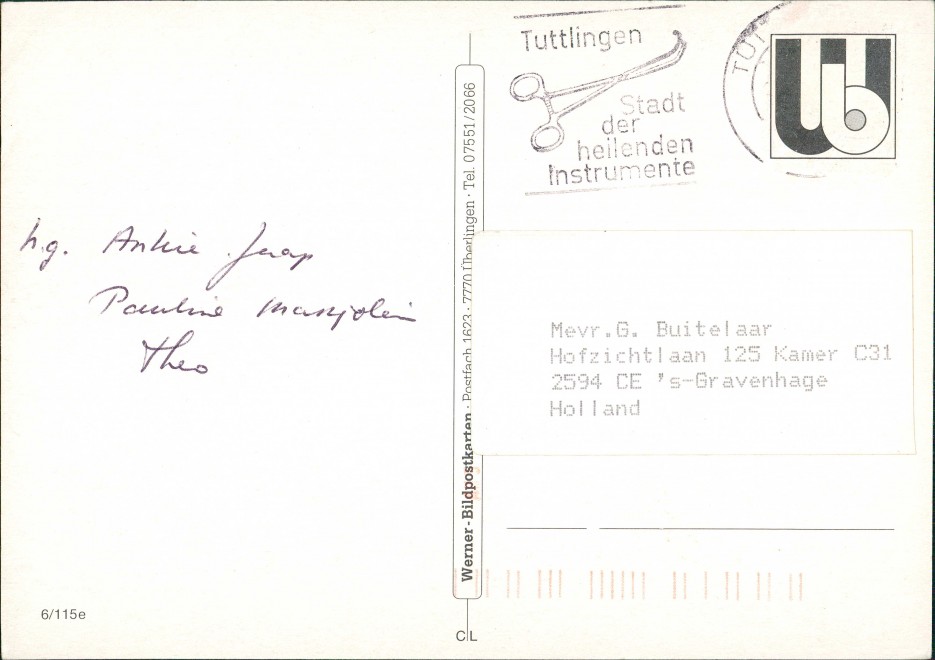 h.g. Ankie Jaap
Pauline Marjolein
Theo
6/115e
Werner-Bildpostkarten · Postfach 1623 · 7770 Überlingen · Tel. 07551/2066
CL
Tuttlingen
Stadt
der
heilenden
Instrumente
TUT
Wb
Mevr.G. Buitelaar
Hofzichtlaan 125 Kamer C31
2594 CE 's-Gravenhage
Holland